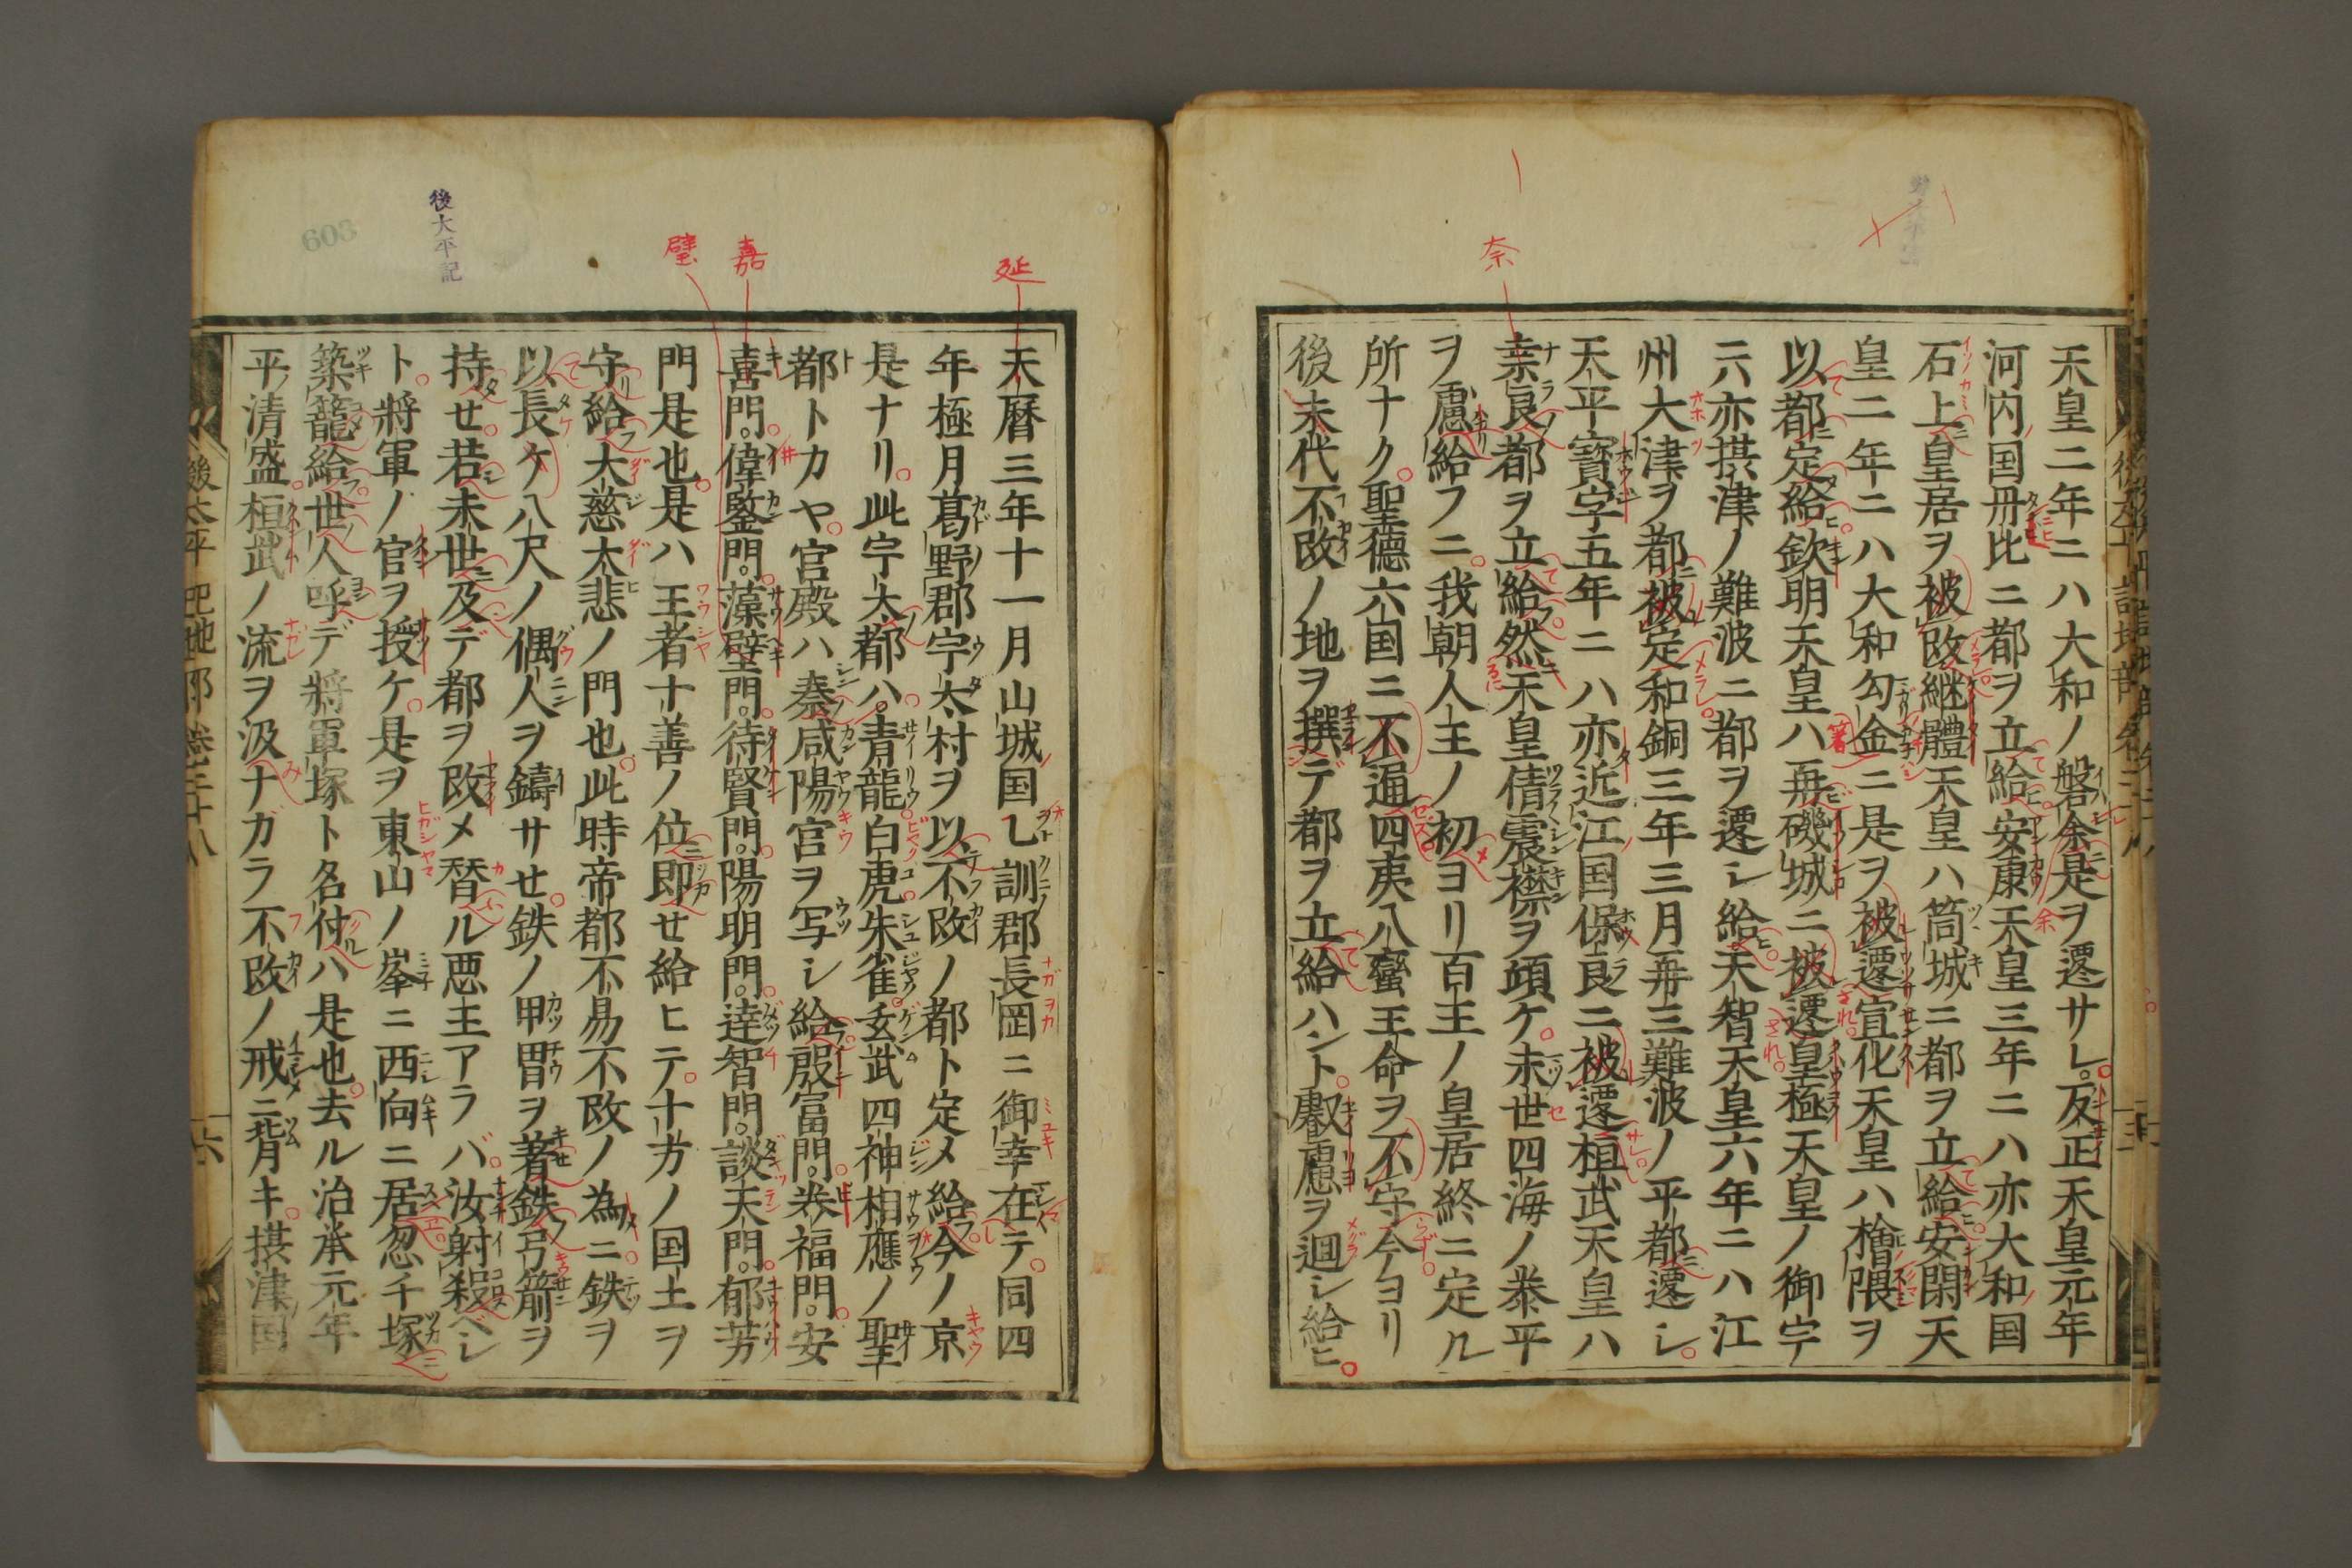 天皇二年ニハ大和ノ磐余是ヲ遷サレ。反正天皇元年
河内国丹比ニ都ヲ立給安康天皇三年ニハ亦大和国
石上皇居ヲ被改継體天皇ハ筒城ニ都ヲ立給安閑天
皇二年ニハ大和勾金ニ是ヲ被遷宣化天皇ハ檜隈ヲ
以都定給欽明天皇ハ再磯城ニ被遷皇極天皇ノ御宇
ニ亦摂津ノ難波ニ都ヲ遷シ給天智天皇六年ニハ江
州大津ヲ都被定和銅三年三月再三難波ノ平都遷シ。
天平寳字五年ニハ亦近江国保良ニ被遷桓武天皇ハ
柰良都ヲ立給然天皇倩震襟ヲ頃ケ。末世四海ノ泰平
ヲ慮給フニ。我朝人主ノ初ヨリ百王ノ皇居終ニ定ル
所ナク。聖徳六国ニ不逼四夷八蠻王命ヲ不守今ヨリ
後末代不改ノ地ヲ撰デ都ヲ立給ハント。叡慮ヲ廻シ給ヒ。
奈
天暦三年十一月山城国乙訓郡長岡ニ御幸在テ。同四
年極月葛野郡宇太村ヲ以不改ノ都ト定メ給今ノ京
是ナリ。此宇太都ハ。青龍白虎朱雀玄武四神相應ノ聖
都トカヤ。宮殿ハ秦咸陽宮ヲ写シ給殷富門。美福門。安
喜門。偉鑒門。藻壁門。待賢門。陽明門。達智門。談天門。郁芳
門是也。是ハ王者十善ノ位即セ給ヒテ。十方ノ国土ヲ
守給大慈大悲ノ門也。此時帝都不易不改ノ為ニ鉄ヲ
以長ケ八尺ノ偶人ヲ鑄サセ。鉄ノ甲冑ヲ着鉄弓箭ヲ
持セ。若末世及デ都ヲ改メ替ル悪王アラバ。汝射殺ベシ
ト。將軍ノ官ヲ授ケ。是ヲ東山ノ峯ニ西向ニ居忽千塚
築籠給世人呼デ將軍塚ト名付ハ是也。去ル治承元年
平清盛。桓武ノ流ヲ汲ナガラ不改ノ戒ニ背キ。摂津国
延
嘉
壁
後大平記
603